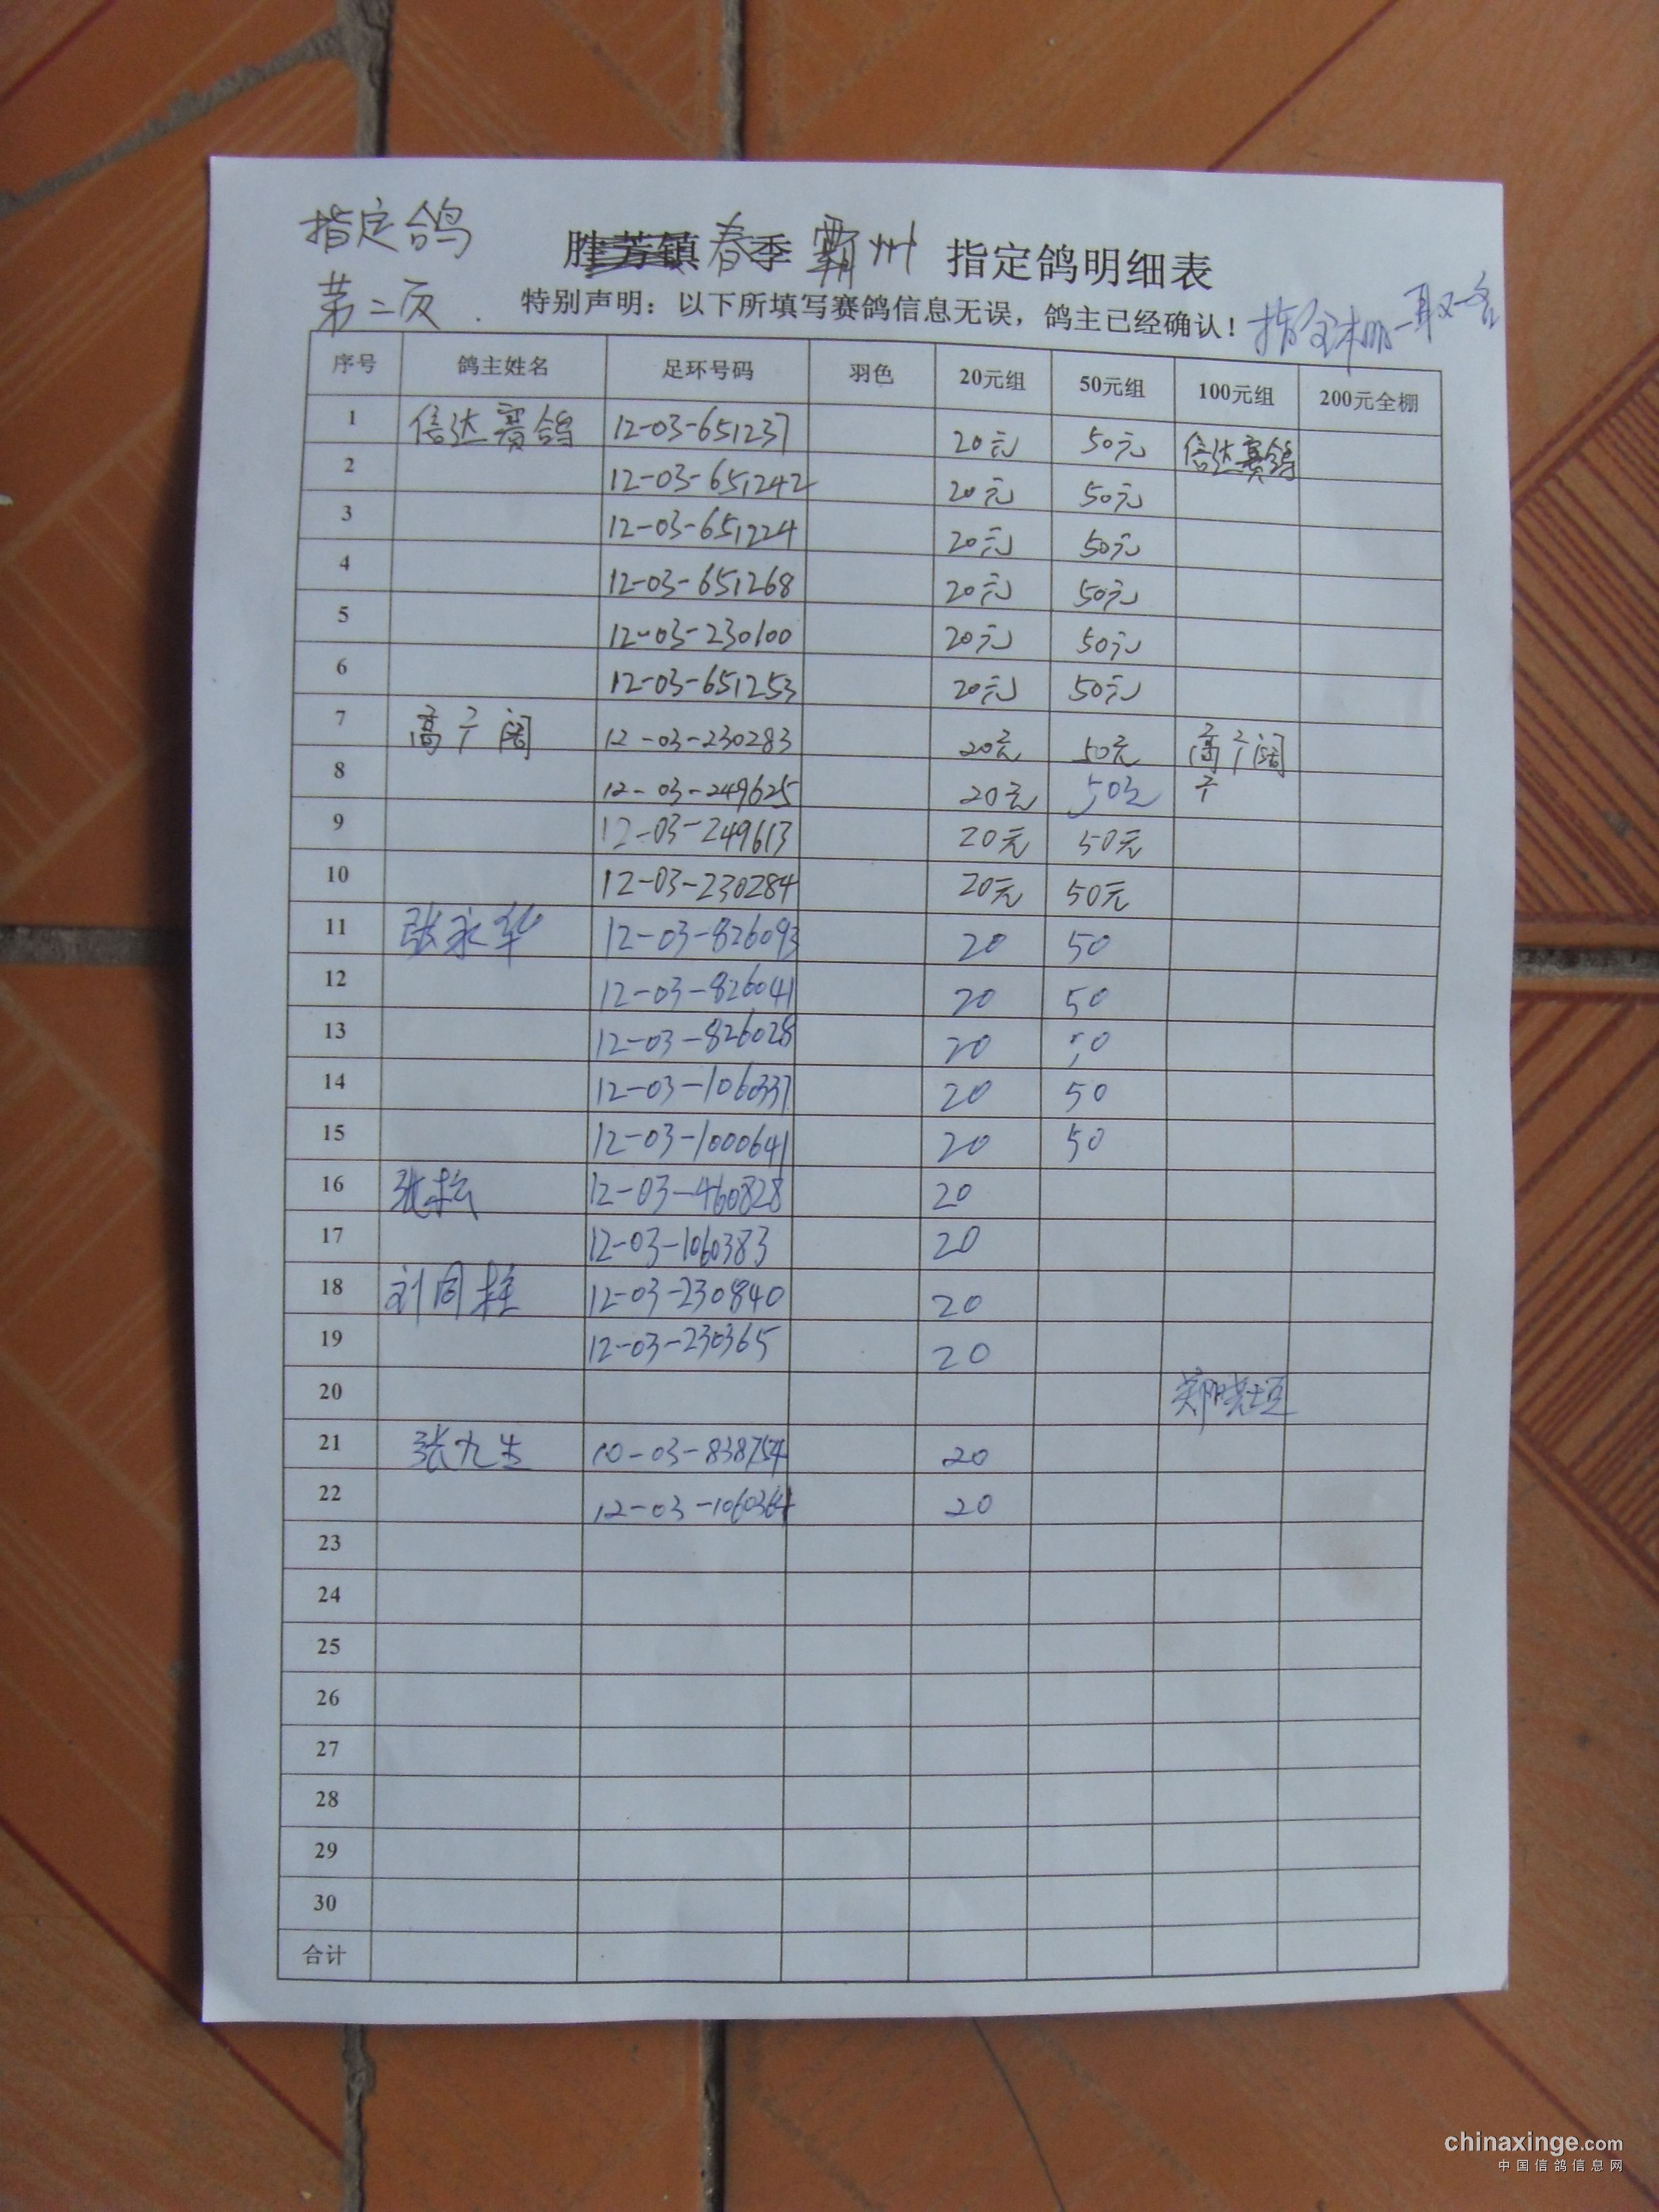 指定鸽
第二页
胜芳镇春季霸州 指定鸽明细表
特别声明：以下所填写赛鸽信息无误，鸽主已经确认！
指全棚一取一名
序号 鸽主姓名 足环号码 羽色 20元组 50元组 100元组 200元全棚
1 信达赛鸽 12-03-651237 20元 50元 信达赛鸽
2 12-03-651242 20元 50元
3 12-03-651224 20元 50元
4 12-03-651268 20元 50元
5 12-03-230100 20元 50元
6 12-03-651253 20元 50元
7 高子阔 12-03-230283 20元 50元 高子阔
8 12-03-249625 20元 50元 子
9 12-03-249613 20元 50元
10 12-03-230284 20元 50元
11 张永华 12-03-826093 20 50
12 12-03-826041 20 50
13 12-03-826028 20 50
14 12-03-1060337 20 50
15 12-03-1000641 20 50
16 张松 12-03-460828 20
17 12-03-1060383 20
18 刘同柱 12-03-230840 20
19 12-03-230365 20
20
21 张九生 10-03-838754 20
22 12-03-1060364 20
23
24
25
26
27
28
29
30
合计
chinaxinge.com
中国信鸽信息网